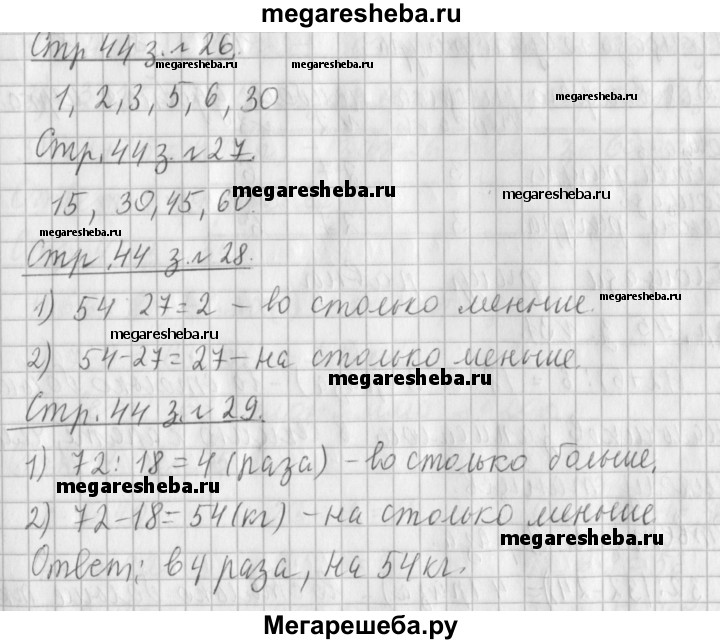 megaresheba.ru
Стр 44 з. № 26.
megaresheba.ru megaresheba.ru
megaresheba.ru
1, 2, 3, 5, 6, 30
Стр. 44 з. № 27.
megaresheba.ru megaresheba.ru
15, 30, 45, 60.
megaresheba.ru
Стр. 44 з. № 28.
1) 54 27 = 2 – во столько меньше.
megaresheba.ru
megaresheba.ru
2) 54 - 27 = 27 – на столько меньше.
megaresheba.ru
Стр. 44 з. № 29.
1) 72 : 18 = 4 (раза) – во столько больше,
megaresheba.ru
2) 72 – 18 = 54 (кг) – на столько меньше
megaresheba.ru
Ответ: в 4 раза, на 54 кг.
megaresheba.ru
Мегарешеба.ру